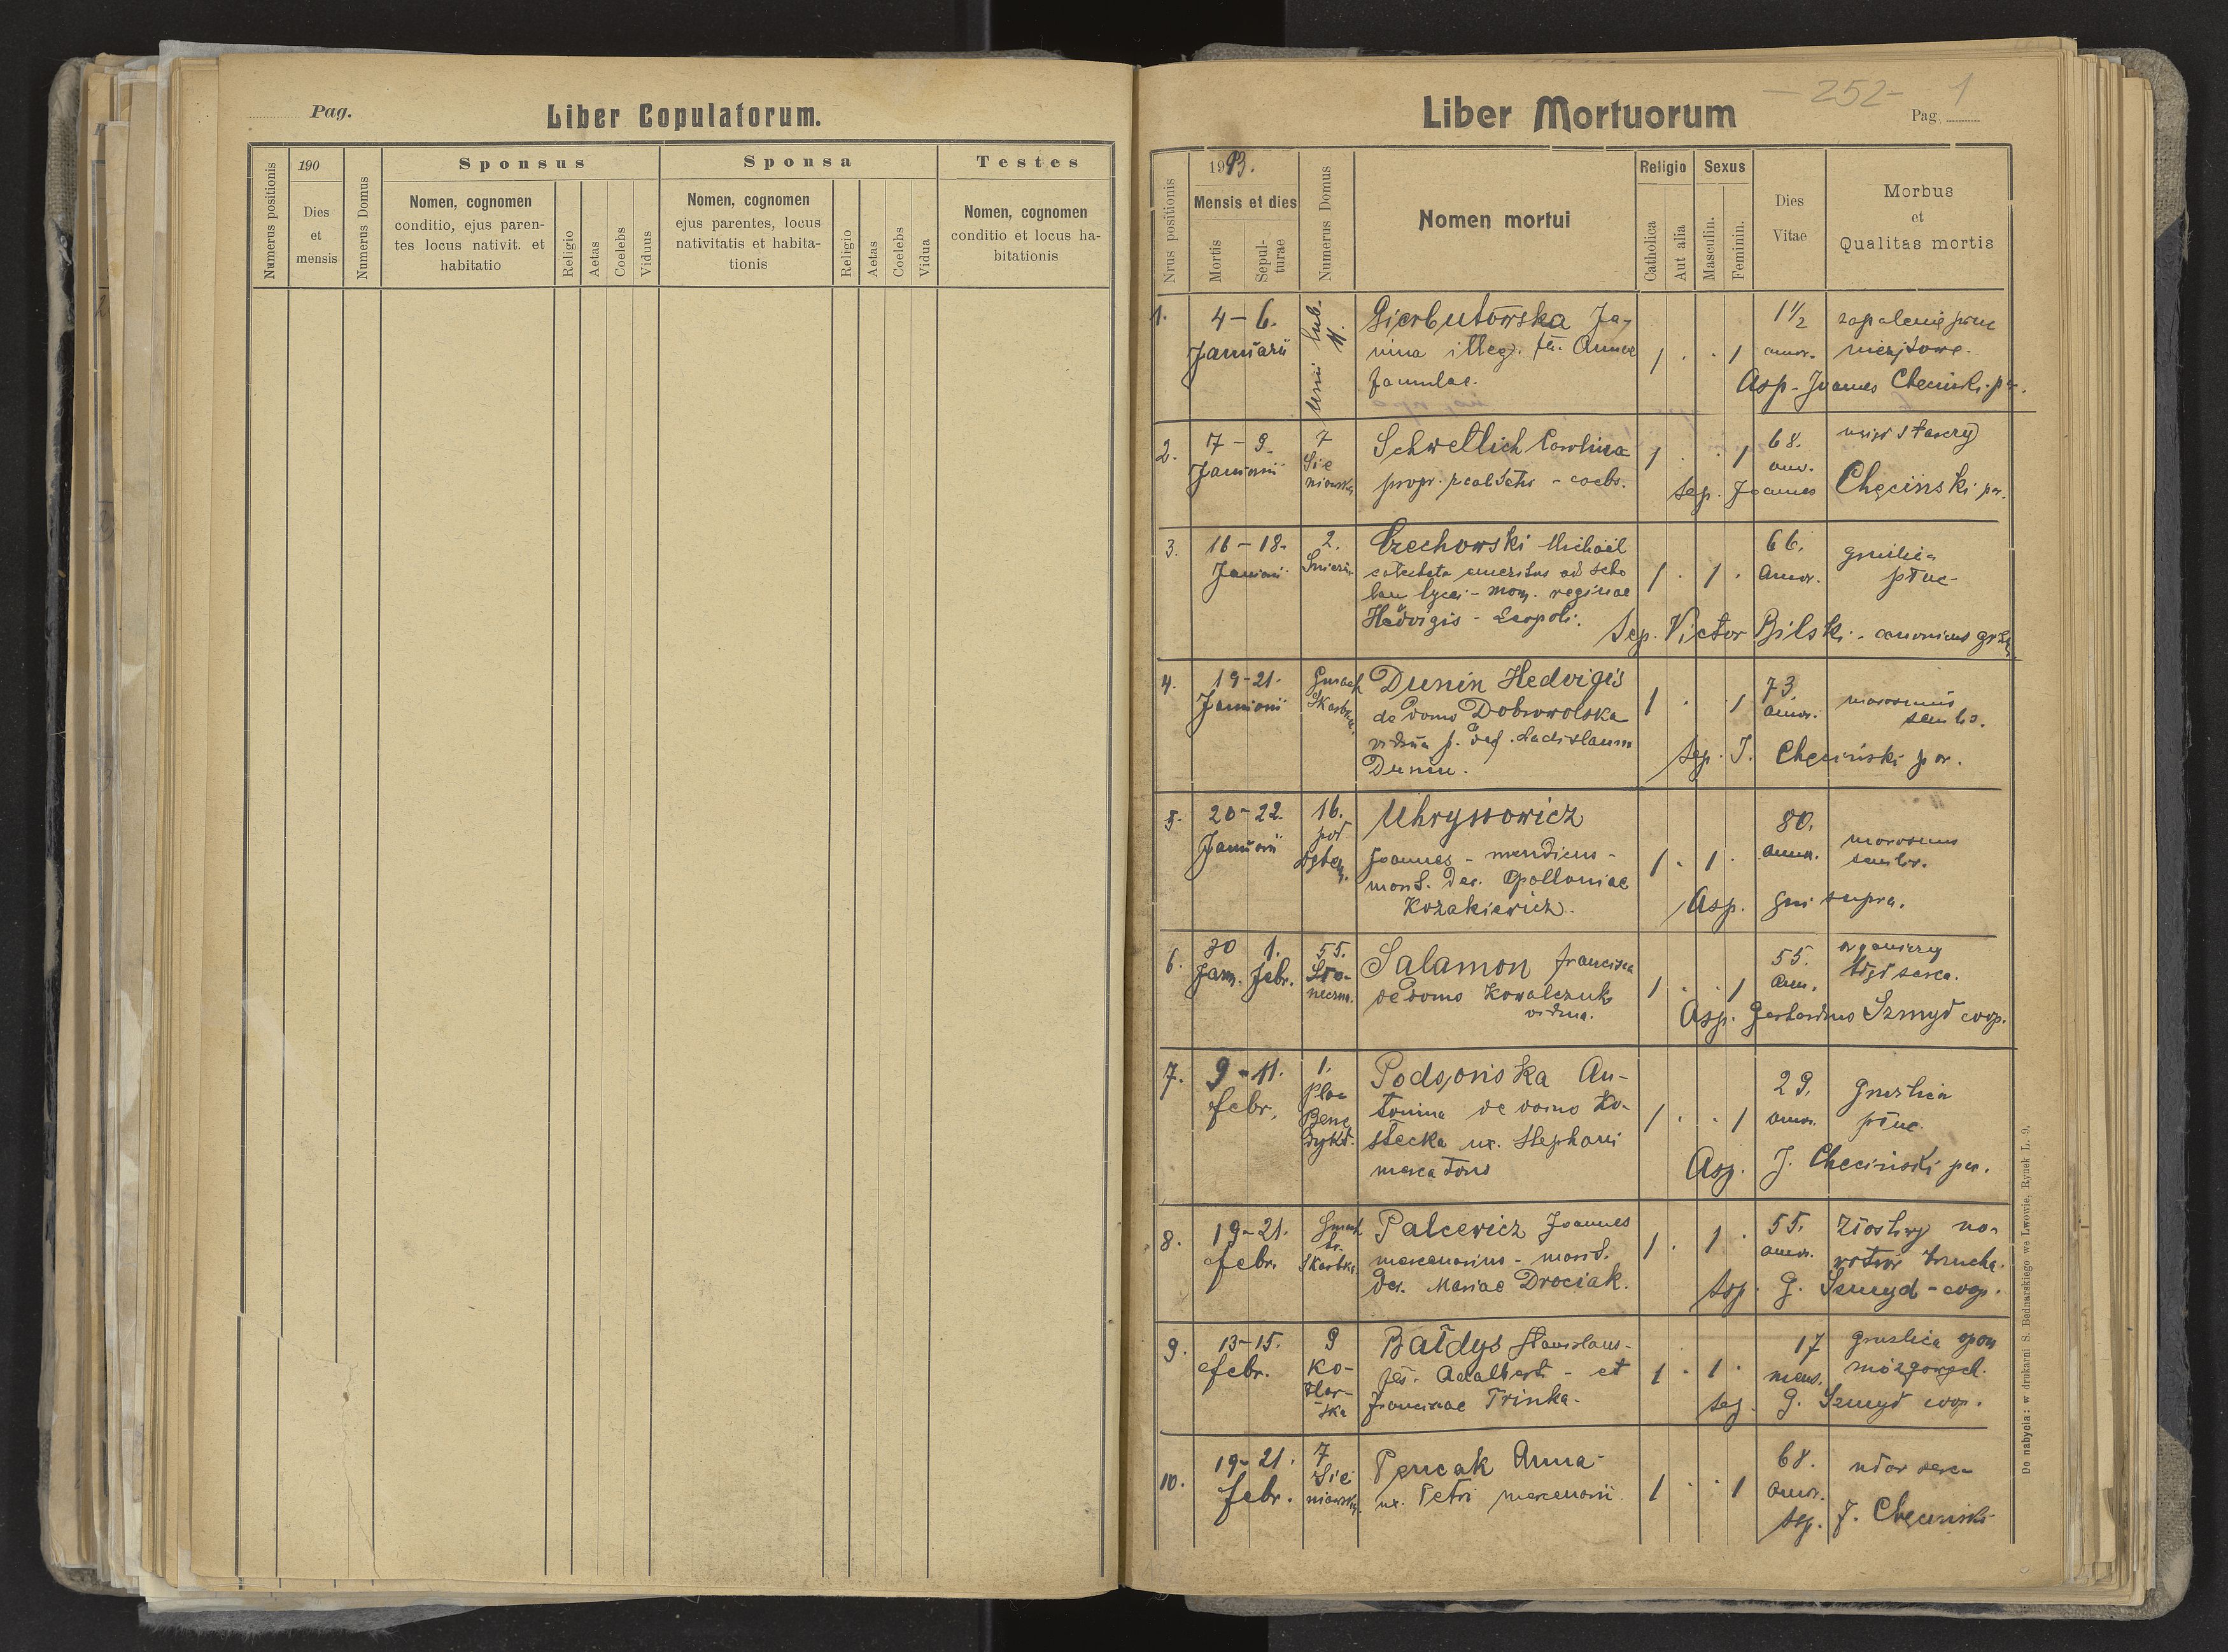 Pag.
Liber Copulatorum.
Numerus positionis
190
Dies
et
mensis
Numerus Domus
Sponsus
Nomen, cognomen
conditio, ejus paren-
tes locus nativit. et
habitatio
Religio
Aetas
Coelebs
Viduus
Sponsa
Nomen, cognomen
ejus parentes, locus
nativitatis et habita-
tionis
Religio
Aetas
Coelebs
Vidua
Testes
Nomen, cognomen
conditio et locus ha-
bitationis
- 252 - 1
Liber Mortuorum
Pag.
Nrus positionis
1913.
Mensis et dies
Mortis
Sepul-
turae
Numerus Domus
Nomen mortui
Religio
Catholica
Aut alia
Sexus
Masculin.
Feminin.
Dies
Vitae
Morbus
et
Qualitas mortis
1. 4-6. 11. Gierbutowska Ja- 1½ zapalenie płuc
Januarii nina illeg. fil. Annae 1 . . 1 annor.
famulae.
Asp. Joannes Checiński par.
2. 7-9. 7 Schwetlich Carolina 1 . . 1 68. uwiąd starczy
Januarii Sie niawska propr. realitatis - coebs. ann.
Sep. Joannes Checinski par.
3. 16-18. 2. Czechowski Michaël 66. gruźlica
Januarii catecheta emeritus ad scho 1 . 1 . annor. płuc
lam lycei - reginae
Hedvigis - Leopoli.
Sep. Victor Bilski - canonicus
4. 19-21. Gmach Dunin Hedvigis 73. marasmus
Januarii Skarbka. de domo Dobrowolska 1 . . 1 annor. senilis.
vidua p. def. Ladislaum
Dunin.
Sep. J. Checiński par.
5. 20-22. 16. Uhryssowicz 80. marasmus
Januarii pod dębem. Joannes - mendicus - 1 . 1 . annor. senilis.
marit. der. Apolloniae
Kozakiewicz.
Asp. qui supra.
6. 30 1. 55. Salamon Francisca 55. organiczny
Jan. Febr. Słoneczna. de domo Kowalczuk 1 . . 1 ann. błąd serca.
vidua.
Asp. Gerhardus Szmyd coop.
7. 9-11. 1. Podgorska An- 29. gruźlica
Febr. plac Bene dykt. tonina de domo Ko- 1 . . 1 annor. płuc
stecka ux. Stephani
mercatoris
Asp. J. Checiński par.
8. 19-21. Gmach Palcewicz Joannes 55. złośliwy no-
Febr. hr. Skarbka. mercenarius - marit. 1 . 1 . annor. wotwór brzucha.
der. Mariae Drociak.
Asp. G. Szmyd - coop.
9. 13-15. 9 Bałdys Stanislaus - 17 gruźlica opon
Febr. Ko- tlar- ska fil. Adalberti - et 1 . 1 . mens. mózgowych.
Franciscae Trinka.
Sep. G. Szmyd coop.
10. 19-21. 7 Pencak Anna - 68. udar serca
Febr. Sie niawska. ux. Petri mercenarii. 1 . . 1 annor.
Sep. J. Checinski
Do nabycia: w drukarni S. Bednarskiego we Lwowie, Rynek L. 9.